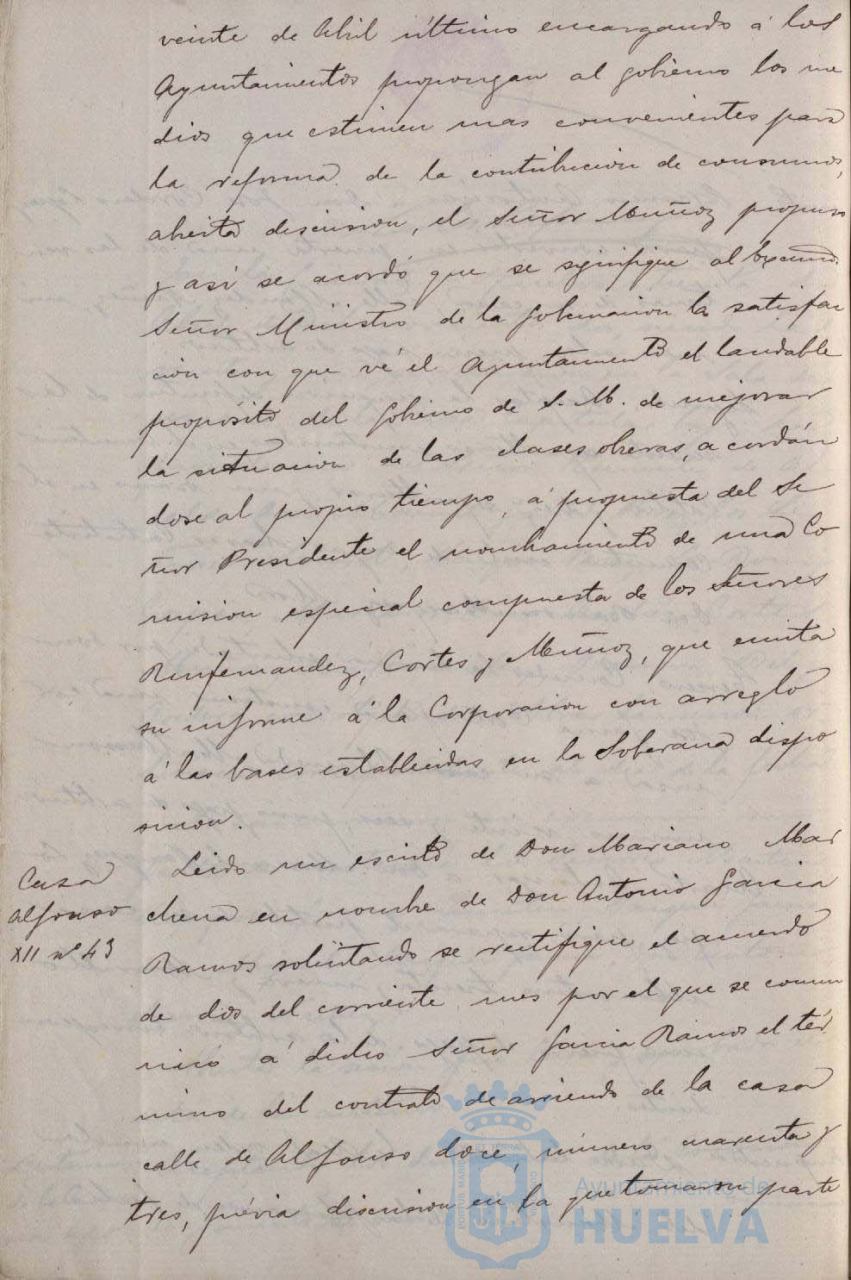 veinte de Abril último encargando á los
Ayuntamientos propongan al Gobierno los me
dios que estimen mas convenientes para
la reforma de la contribucion de consumos,
abierta discusion, el Señor Muñoz propuso
y así se acordó que se signifique al Excmo.
Señor Ministro de la Gobernacion la satisfac
cion con que vé el Ayuntamiento el laudable
propósito del Gobierno de S. M. de mejorar
la situacion de las clases obreras, acordán
dose al propio tiempo, á propuesta del Se
ñor Presidente el nombramiento de una Co
mision especial compuesta de los Señores
Ruifernandez, Cortes y Muñoz, que emita
su informe á la Corporacion con arreglo
á las bases establecidas en la Soberana dispo
sicion.
Casa
Alfonso
XII nº 43
Leido un escrito de Don Mariano Mar
chena en nombre de Don Antonio Garcia
Ramos solicitando se rectifique el acuerdo
de dos del corriente mes por el que se comu
nicó á dicho Señor Garcia Ramos el tér
mino del contrato de arriendo de la casa
calle de Alfonso doce, número cuarenta y
tres, prévia discusion en la que tomaron parte
Ayuntamiento de
HUELVA